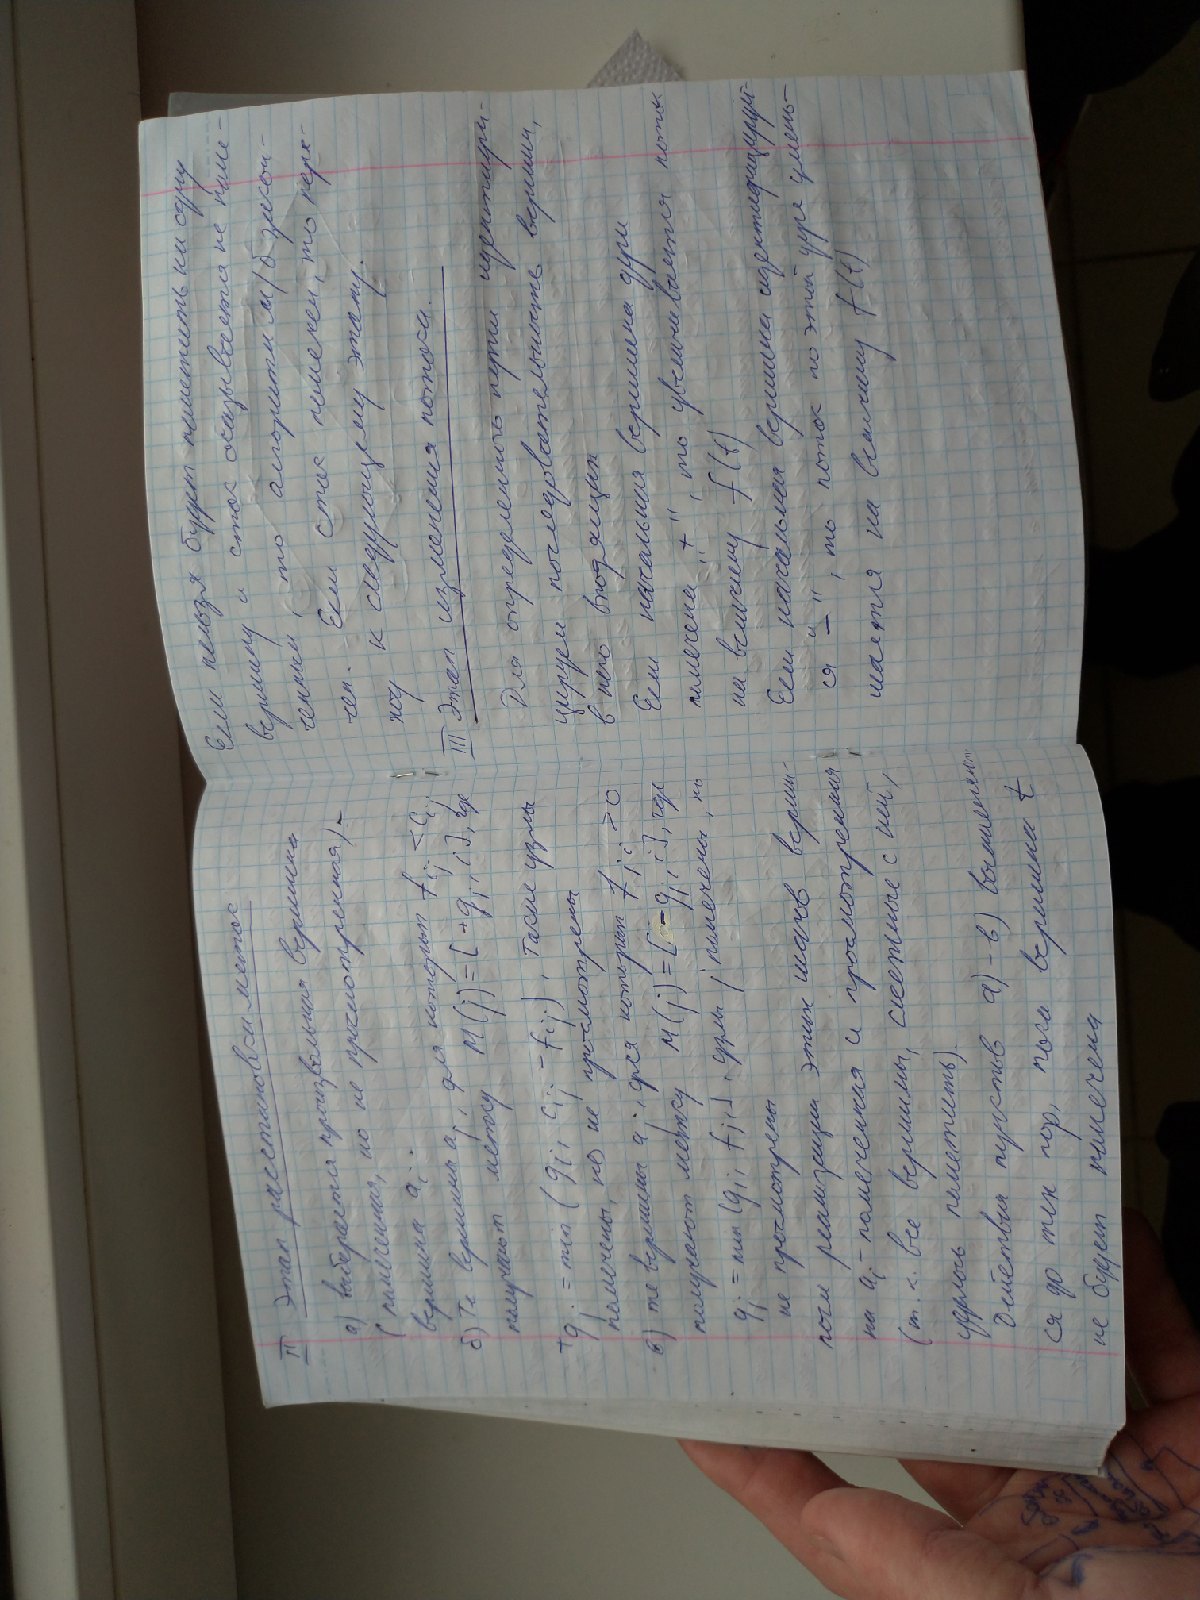 II Этап расстановки меток
а) выбирается произвольная вершина
(помеченная, но не просмотренная) -
вершина ai.
б) Те вершины aj, для которых fij < cij
получают метку M(j)=[+gj, i], где
+gj = min (gi, cij - fij), такие узлы
помечены, но не просмотрены
в) те вершины aj, для которых fji > 0
получают метку M(j)=[-gj, i], где
gj = min(gi, fji), узлы j помечены, но
не просмотрены
после реализации этих шагов верши-
на ai - помеченная и просмотренная
(т.к. все вершины, смежные с ней,
удалось пометить).
Действия пунктов а)-в) выполняют
ся до тех пор, пока вершина t
не будет помечена
Если нельзя будет пометить ни одну
вершину и сток оказывается не поме-
ченным, то алгоритм м/б закон-
чен. Если сток помечен, то пере-
ход к следующему этапу.
III Этап изменения потока.
Для определенного идентифи-
цируем последовательность вершин,
в него входящих
Если начальная вершина дуги
помечена "+", то увеличивается поток
на величину f(t)
Если начальная вершина идентифицирует-
ся "-", то поток по этой дуге умень-
шается на величину f(t)